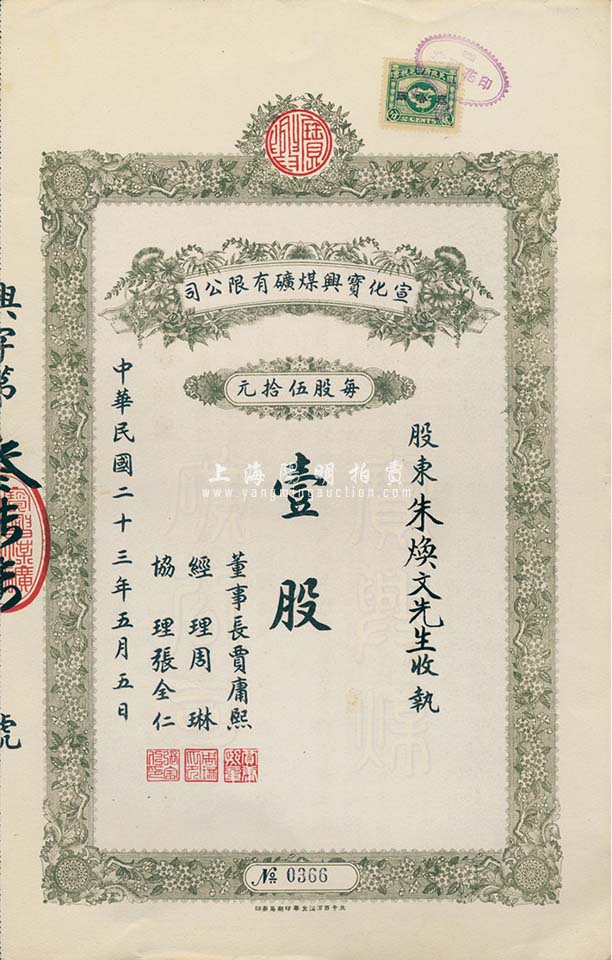 寶興
宣化寶興煤礦有限公司
每股伍拾元
股東朱煥文先生收執
壹股
董事長賈庸熙
經理周琳
協理張全仁
中華民國二十三年五月五日
興字第
號
№ 0366
上海陽明拍賣
www.yangmingauction.com
2 CENTS
印花